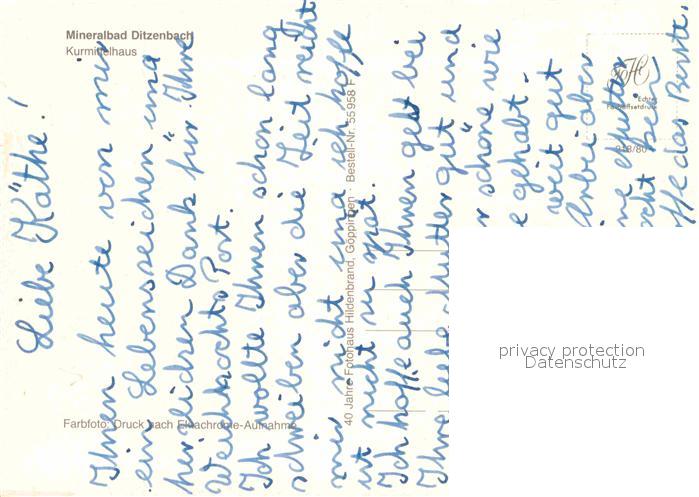 Mineralbad Ditzenbach
Kurmittelhaus
Echte
Farbfoto: Druck nach Ektachrome-Aufnahme
40 Jahre Fotohaus Hildenbrand, Göppingen · Bestell-Nr. 55 958 F
Liebe Käthe!
Ihnen heute von mir
ein Lebenszeichen und
herzlichen Dank für Ihre
Weihnachts Post.
Ich wollte Ihnen schon lang
schreiben aber die Zeit reicht
mir nicht und ich hoffe
ist nicht zu spät.
Ich hoffe auch Ihnen geht bei
Ihre liebe Mutter gut und
schöne wie
gehabt.
weit gut
Arbei aber
sein
offe das Beste.
privacy protection
Datenschutz